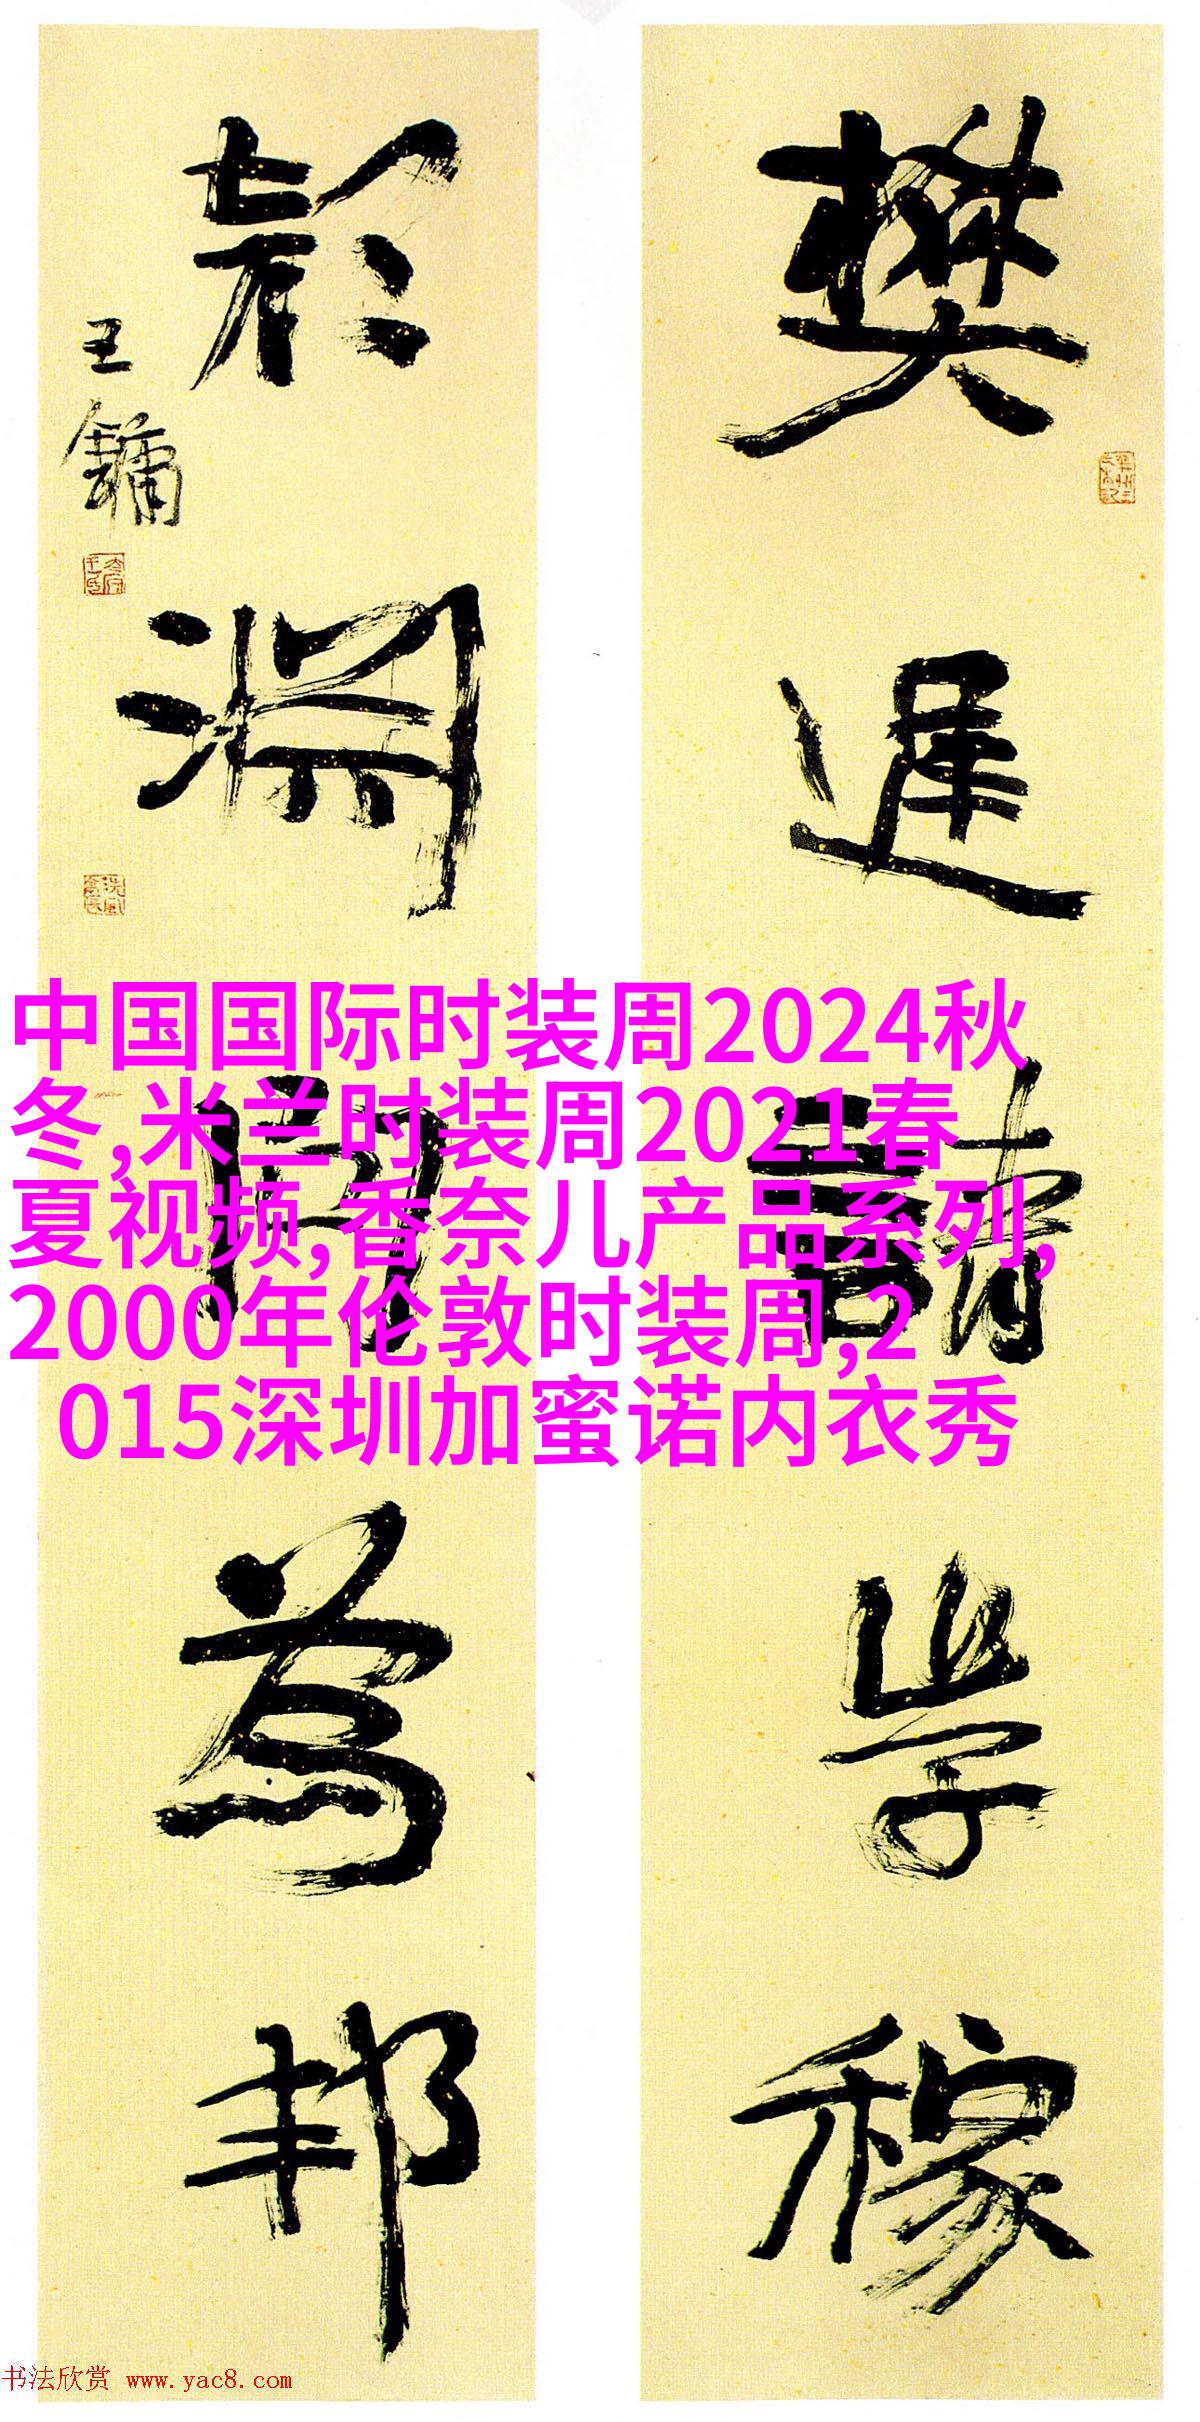 樊遲請学稼
顔淵問為邦
王鏞
中国国际时装周2024秋
冬,米兰时装周2021春
夏视频,香奈儿产品系列,
2000年伦敦时装周,2
015深圳加蜜诺内衣秀
书法欣赏 www.yac8.com